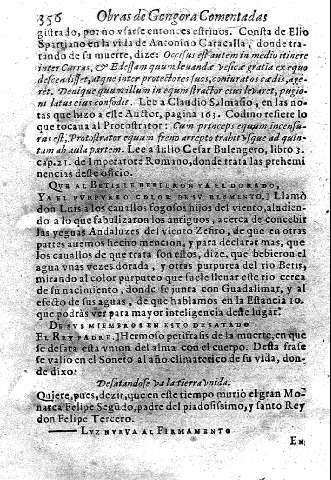 356 Obras de Gongora Comentadas
gistrado, por no vsarse entonces estriuos. Consta de Elio
Spartiano en la vida de Antonino Caracalla, donde tra-
tando de su muerte, dize: Occisus est autem in medio itinere
inter Carras, & Edessam quum leuandæ vesicæ gratia ex equo
descendisset, atque inter protectores suos, coniuratos cædis, age-
ret. Denique quum illum in equum strator eius leuaret, pugio-
ne latus eius confodit. Lee a Claudio Salmasio, en las no-
tas que hizo a este Auctor, pagina 163. Codino refiere lo
que tocaua al Protostrator: Cum princeps equum incensu-
rus est, Protostrator equum freno arrepto trahit vsque ad quin-
tam ab aula partem. Lee a Iulio Cesar Bulengero, libro 3.
cap. 21. de Imperatore Romano, donde trata las prehemi
nencias deste oficio.
QUE AL BETIS LE BEBIERON YA EL DORADO,
YA EL PURPUREO COLOR DE SU ELEMENTO.) Llamó
don Luis a los cauallos fogosos hijos del viento, aludien-
do a lo que fabulizaron los antiguos, acerca de concebir
las yeguas Andaluzes del viento Zefiro, de que en otras
partes auemos hecho mencion, y para declarar mas, que
los cauallos de que trata son estos, dize, que bebieron el
agua vnas vezes dorada, y otras purpurea del rio Betis,
mirando al color purpureo que suele lleuar este rio cerca
de su nacimiento, donde se junta con Guadalimar, y al
efecto de sus aguas, de que hablamos en la Estancia 10.
que podràs ver para mayor inteligencia deste lugar.
DE SUS MIEMBROS EN ESTO DESATADO
EL REY PADRE.) Hermoso perifrasis de la muerte, en que
se desata esta vnion del alma con el cuerpo. Desta frase
se valio en el Soneto al año climaterico de su vida, don-
de dixo:
Desatandose va la tierra vnida.
Quiere, pues, dezir, que en este tiempo murio el gran Mo-
narca Felipe Segũdo, padre del piadosissimo, y santo Rey
don Felipe Tercero.
LUZ NUEVA AL FIRMAMENTO
EN